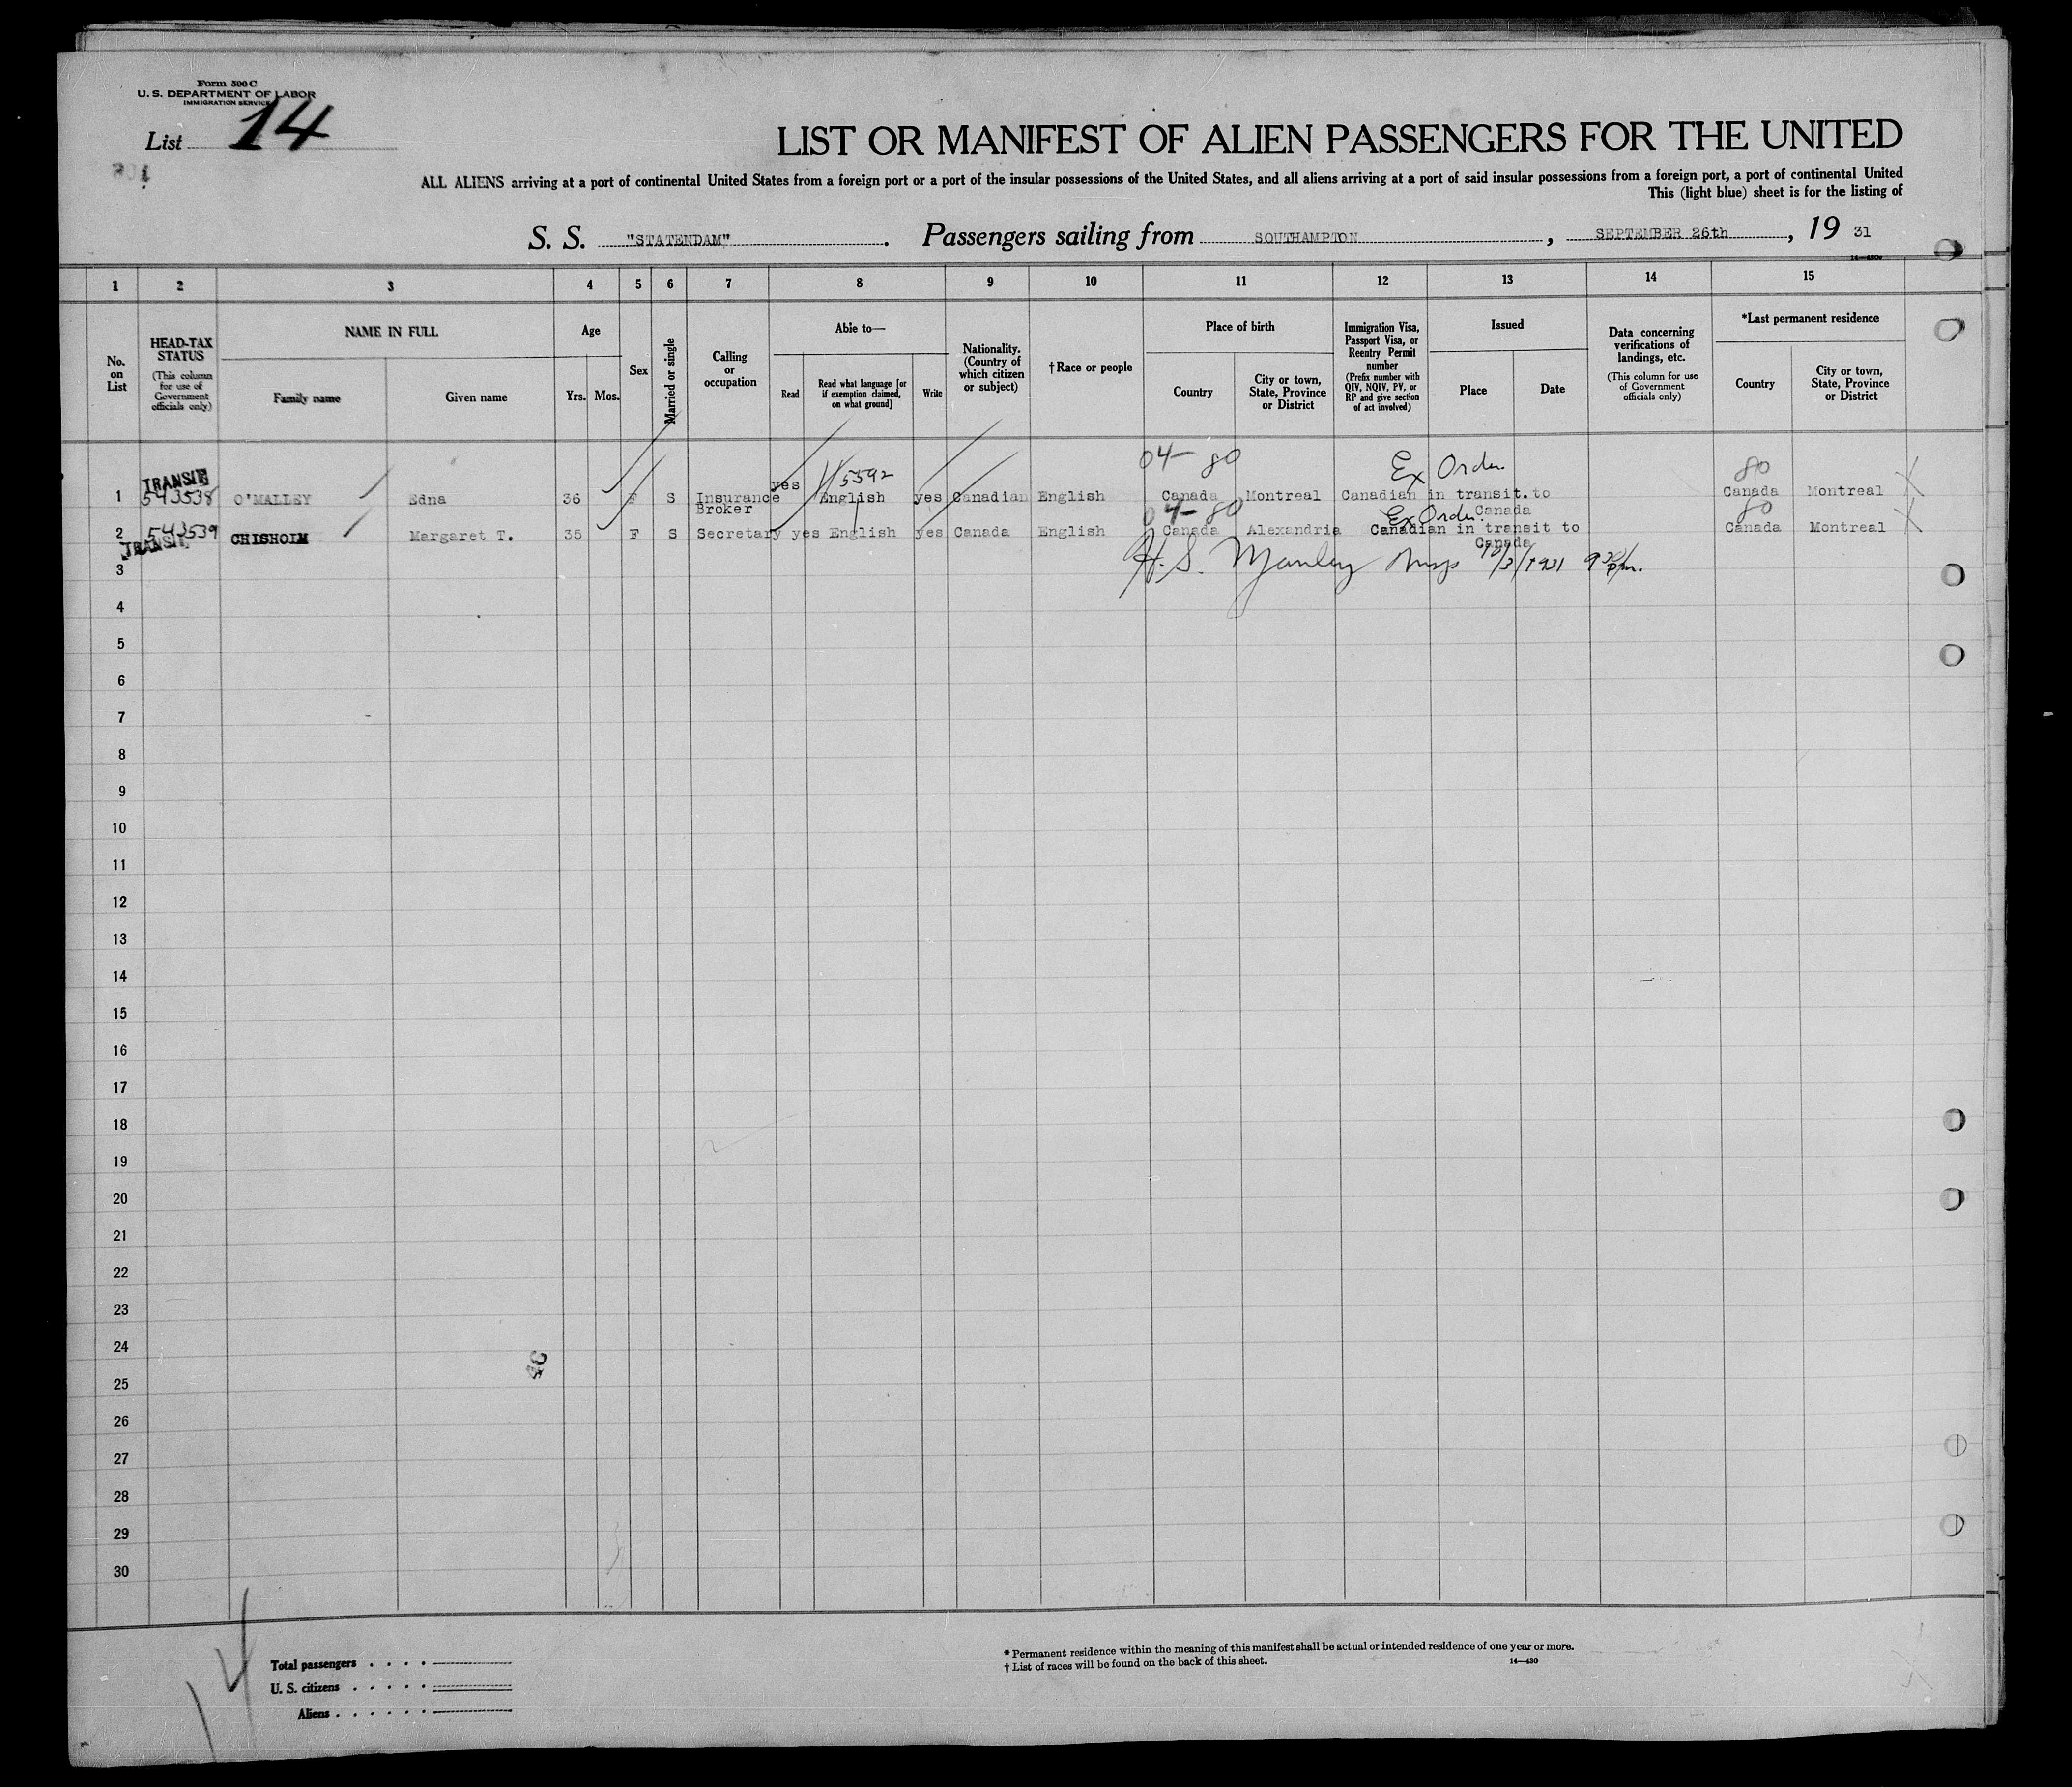 Form 500 C
U. S. DEPARTMENT OF LABOR
IMMIGRATION SERVICE
List 14
LIST OR MANIFEST OF ALIEN PASSENGERS FOR THE UNITED
ALL ALIENS arriving at a port of continental United States from a foreign port or a port of the insular possessions of the United States, and all aliens arriving at a port of said insular possessions from a foreign port, a port of continental United
This (light blue) sheet is for the listing of
S. S. "STATENDAM". Passengers sailing from SOUTHAMPTON, SEPTEMBER 26th, 19 31
1 2 3 4 5 6 7 8 9 10 11 12 13 14 15
No. on List
HEAD-TAX STATUS
(This column for use of Government officials only)
NAME IN FULL
Family name
Given name
Age
Yrs. Mos.
Sex
Married or single
Calling or occupation
Able to—
Read
Read what language [or if exemption claimed, on what ground]
Write
Nationality. (Country of which citizen or subject)
†Race or people
Place of birth
Country
City or town, State, Province or District
Immigration Visa, Passport Visa, or Reentry Permit number
(Prefix number with QIV, NQIV, PV, or RP and give section of act involved)
Issued
Place
Date
Data concerning verifications of landings, etc.
(This column for use of Government officials only)
*Last permanent residence
Country
City or town, State, Province or District
04-80 Ex Order 80
TRANSIT 5592
1 543538 O'MALLEY Edna 36 F S Insurance Broker yes English yes Canadian English Canada Montreal Canadian in transit to Canada Canada Montreal X
04-80 Ex Order 80
2 543539 CHISHOLM Margaret T. 35 F S Secretary yes English yes Canada English Canada Alexandria Canadian in transit to Canada Canada Montreal X
TRANSIT
3 H. S. Manley 10/3/1931 9 30 p/m.
4
5
6
7
8
9
10
11
12
13
14
15
16
17
18
19
20
21
22
23
24
25
26
27
28
29
30
14
Total passengers
U. S. citizens
Aliens
* Permanent residence within the meaning of this manifest shall be actual or intended residence of one year or more.
† List of races will be found on the back of this sheet.
14—430